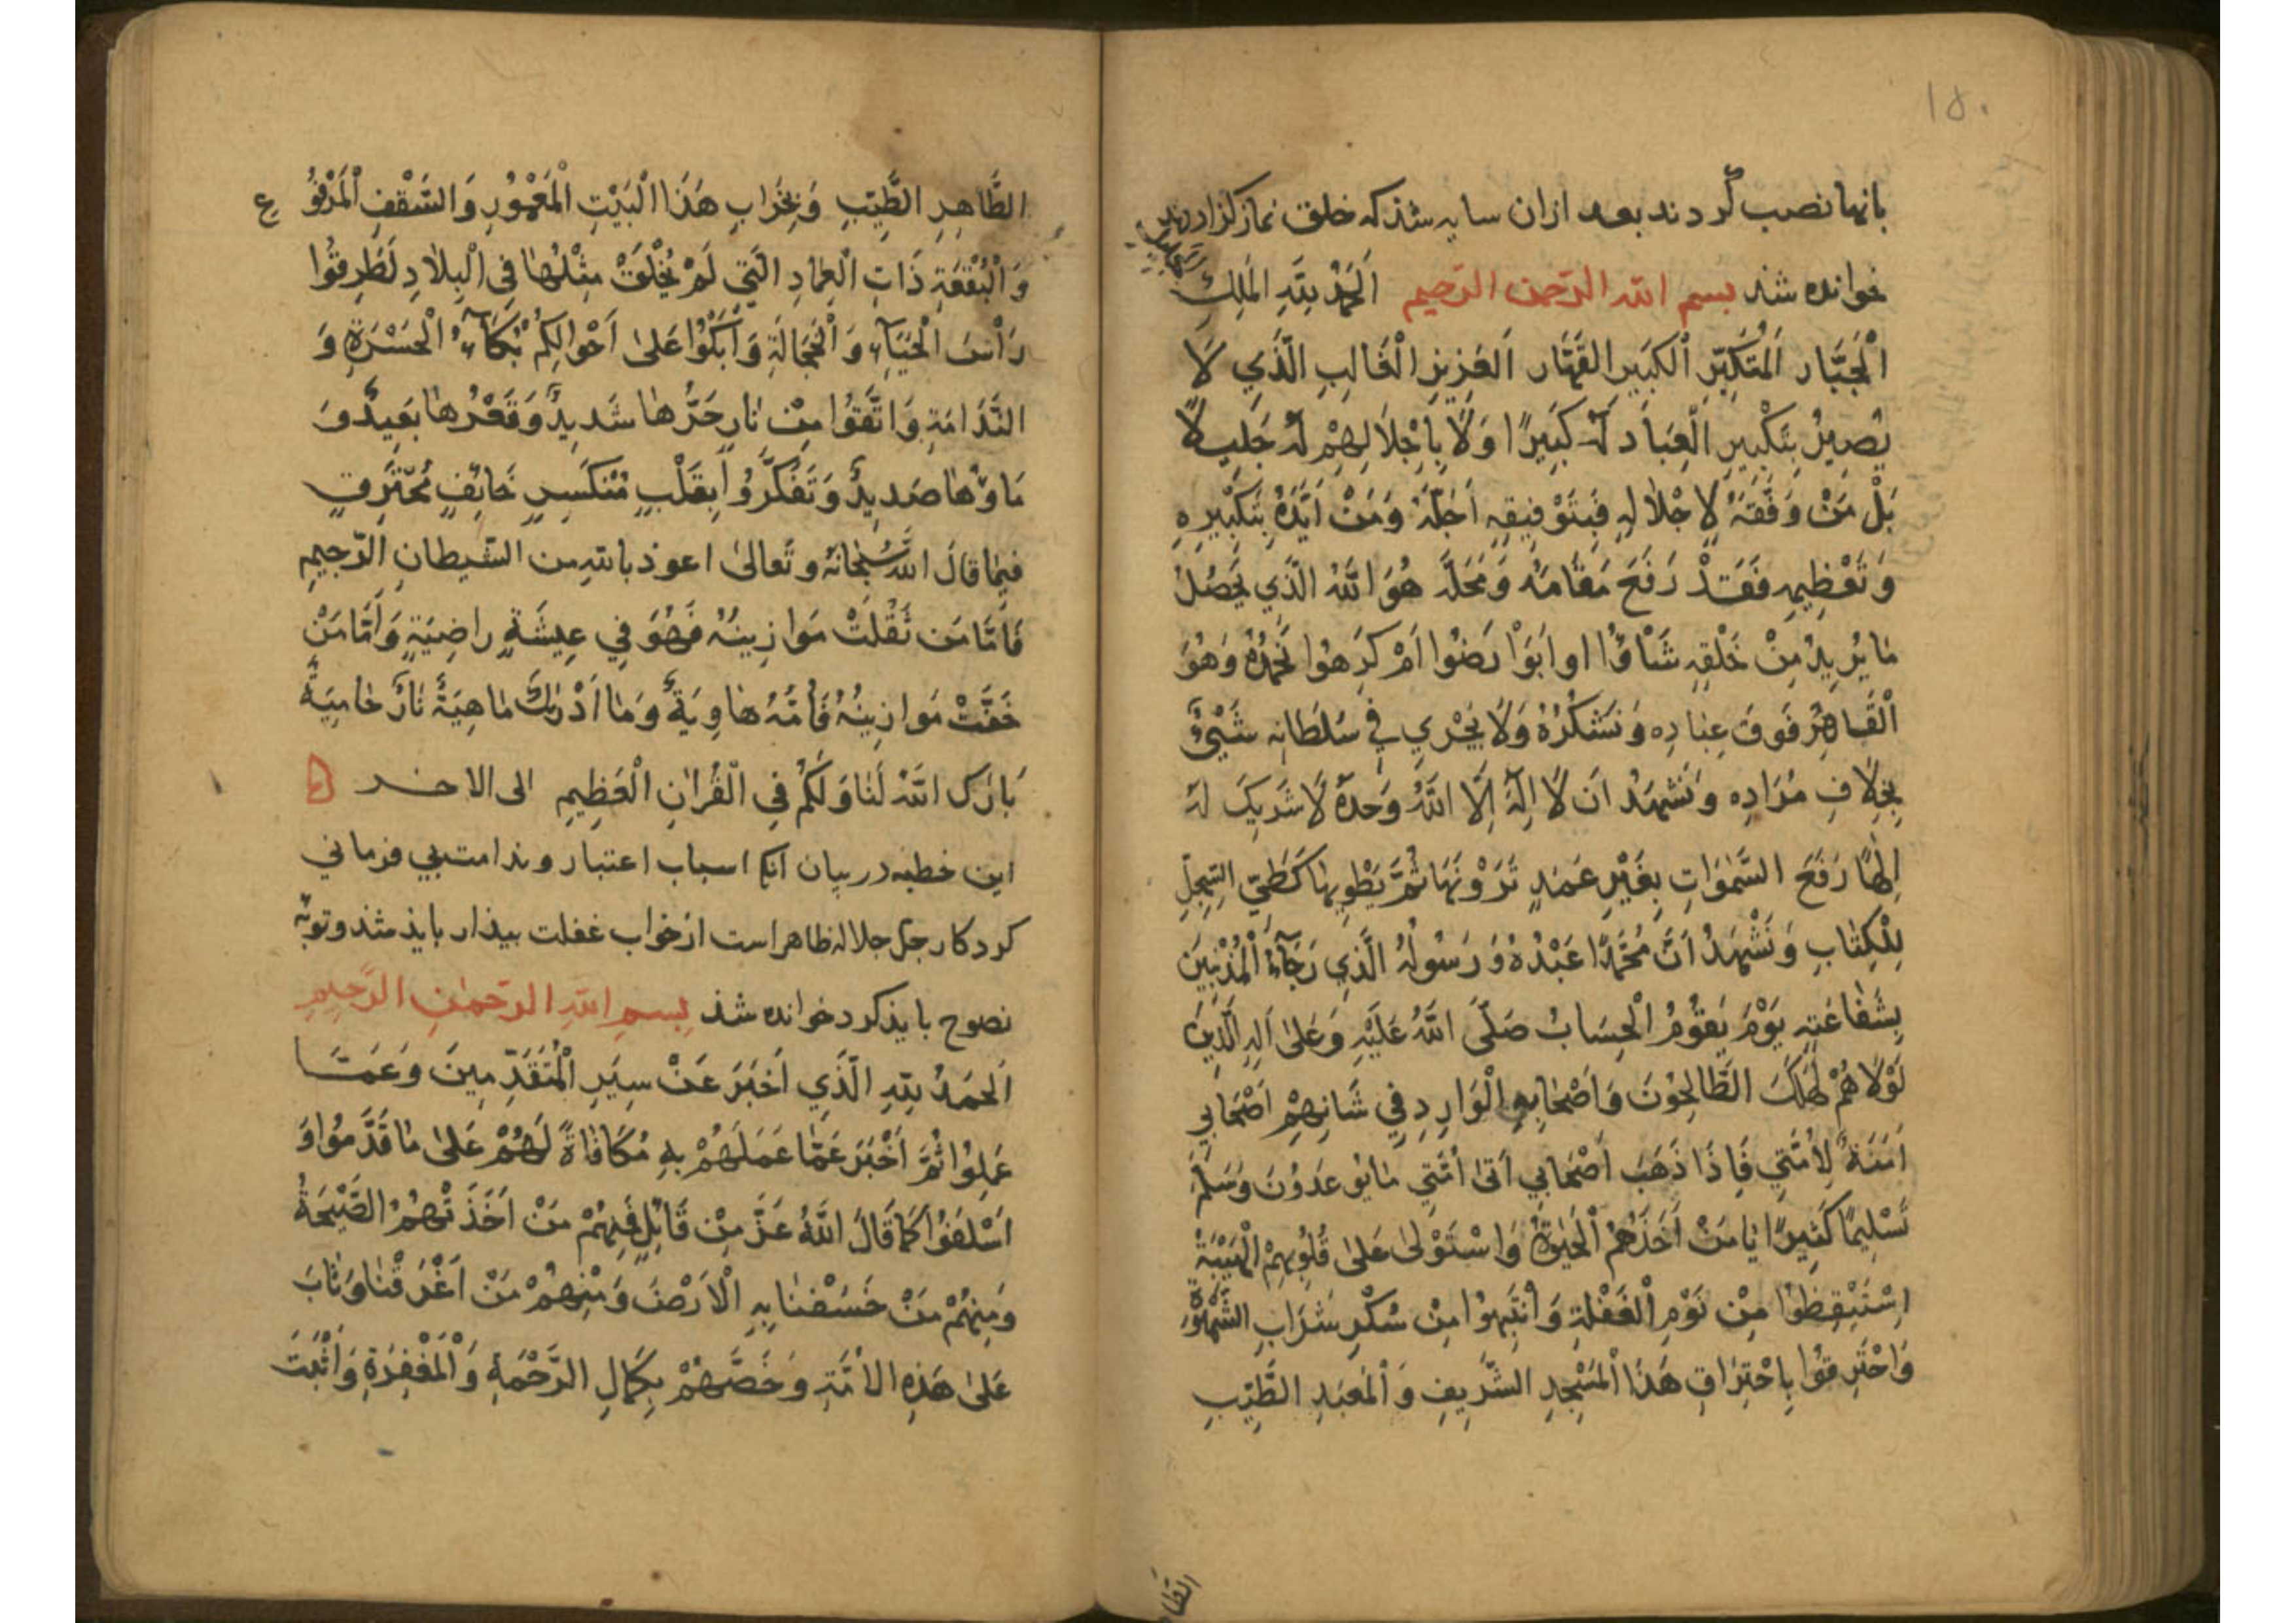 ۱۵۰
بانها نصب کردند بعد ازان سایه شذ که خلق نماز کزاردند
خوانده شذ بسم الله الرحمن الرحيم اَلْحَمْدُ لِلّهِ الْمَلِكِ
الْجَبَّارِ الْمُتَكَبِّرِ الْكَبِيرِ الْقَهَّارِ الْعَزِيزِ الْغَالِبِ الَّذِي لَا
يَصِيرُ بِتَكْبِيرِ الْعِبَادِ لَهُ كَبِيرًا وَلَا بِاِجْلَالِهِمْ لَهُ جَلِيلًا
بَلْ مَنْ وَفَّقَهُ لِاِجْلَالِهِ فَبِتَوْفِيقِهِ اَجَلَّهُ وَمَنْ اَيَّدَهُ بِتَكْبِيرِهِ
وَتَعْظِيمِهِ فَقَدْ رَفَعَ مَقَامَهُ وَمَحَلَّهُ هُوَ اللهُ الَّذِي يَحْصُلُ
مَا يُرِيدُ مِنْ خَلْقِهِ شَاؤُا اَوْ اَبَوْا رَضُوا اَمْ كَرِهُوا نَحْمَدُهُ وَهُوَ
الْقَاهِرُ فَوْقَ عِبَادِهِ وَنَشْكُرُهُ وَلَا يَجْرِي فِي سُلْطَانِهِ شَيْءٌ
بِخِلَافِ مُرَادِهِ وَنَشْهَدُ اَنْ لَا اِلٰهَ اِلَّا اللهُ وَحْدَهُ لَا شَرِيكَ لَهُ
اِلٰهًا رَفَعَ السَّمٰوَاتِ بِغَيْرِ عَمَدٍ تَرَوْنَهَا ثُمَّ يَطْوِيهَا كَطَيِّ السِّجِلِّ
لِلْكِتَابِ وَنَشْهَدُ اَنَّ مُحَمَّدًا عَبْدُهُ وَرَسُولُهُ الَّذِي رَجَآءُ الْمُذْنِبِينَ
بِشَفَاعَتِهِ يَوْمَ يَقُومُ الْحِسَابُ صَلَّى اللهُ عَلَيْهِ وَعَلَىٰ آلِهِ الَّذِينَ
لَوْلَا هُمْ لَهَلَكَ الطَّالِحُونَ وَاَصْحَابِهِ الْوَارِدِ فِي شَانِهِمْ اَصْحَابِي
اَمَنَةٌ لِاُمَّتِي فَاِذَا ذَهَبَ اَصْحَابِي اَتَىٰ اُمَّتِي مَا يُوعَدُونَ وَسَلَّمَ
تَسْلِيمًا كَثِيرًا يَا مَنْ اَخَذَهُمُ الْحَيٰوةُ وَاسْتَوْلَىٰ عَلَىٰ قُلُوبِهِمْ الْهَيْبَةُ
اِسْتَيْقِظُوا مِنْ نَوْمِ الْغَفْلَةِ وَانْتَبِهُوا مِنْ سُكْرِ شَرَابِ الشَّهْوَةِ
وَاحْتَرِقُوا بِاحْتِرَاقِ هَذَا الْمَسْجِدِ الشَّرِيفِ وَالْمَعْبَدِ الطَّيِّبِ
الطا
الطَّاهِرِ الطَّيِّبِ وَبِخَرَابِ هَذَا الْبَيْتِ الْمَعْمُورِ وَالسَّقْفِ الْمَرْفُوع
وَالْبُقْعَةِ ذَاتِ الْعِمَادِ الَّتِي لَمْ يُخْلَقْ مِثْلُهَا فِي الْبِلَادِ لَطَرِقُوا
رَأْسَ الْحَيَآءِ وَالْخَجَالَةِ وَابْكُوا عَلَىٰ اَحْوَالِكُمْ بُكَآءَ الْحَسْرَةِ وَ
النَّدَامَةِ وَاتَّقُوا مِنْ نَارٍ حَرُّهَا شَدِيدٌ وَقَعْرُهَا بَعِيدٌ وَ
مَاؤُهَا صَدِيدٌ وَتَفَكَّرُوا بِقَلْبٍ مُنْكَسِرٍ خَائِفٍ مُحْتَرِقٍ
فِيمَا قَالَ اللهُ سُبْحَانَهُ وَتَعَالَىٰ اعوذ بالله من الشيطان الرجيم
فَاَمَّا مَنْ ثَقُلَتْ مَوَازِينُهُ فَهُوَ فِي عِيشَةٍ رَاضِيَةٍ وَاَمَّا مَنْ
خَفَّتْ مَوَازِينُهُ فَاُمُّهُ هَاوِيَةٌ وَمَا اَدْرٰيكَ مَا هِيَهْ نَارٌ حَامِيَةٌ
بَارَكَ اللهُ لَنَا وَلَكُمْ فِي الْقُرْاٰنِ الْعَظِيمِ الى الاخر
این خطبه در بیان آنک اسباب اعتبار و ندامت بی فرمانی
کردکار جل جلاله ظاهر است از خواب غفلت بیذار بایذ شذ و توبه
نصوح بایذ کرد خوانده شذ بسم الله الرحمن الرحيم
اَلْحَمْدُ لِلّهِ الَّذِي اَخْبَرَ عَنْ سِيَرِ الْمُتَقَدِّمِينَ وَعَمَّا
عَمِلُوا ثُمَّ اَخْبَرَ عَمَّا عَمَلَهُمْ بِهِ مُكَافَاةً لَهُمْ عَلَىٰ مَا قَدَّمُوا وَ
اَسْلَفُوا كَمَا قَالَ اللهُ عَزَّ مِنْ قَائِلٍ فَمِنْهُمْ مَنْ اَخَذَتْهُمُ الصَّيْحَةُ
وَمِنْهُمْ مَنْ خَسَفْنَا بِهِ الْاَرْضَ وَمِنْهُمْ مَنْ اَغْرَقْنَا وَتَابَ
عَلَىٰ هَذِهِ الْاُمَّةِ وَخَصَّهُمْ بِكَمَالِ الرَّحْمَةِ وَالْمَغْفِرَةِ وَاَثْبَتَ